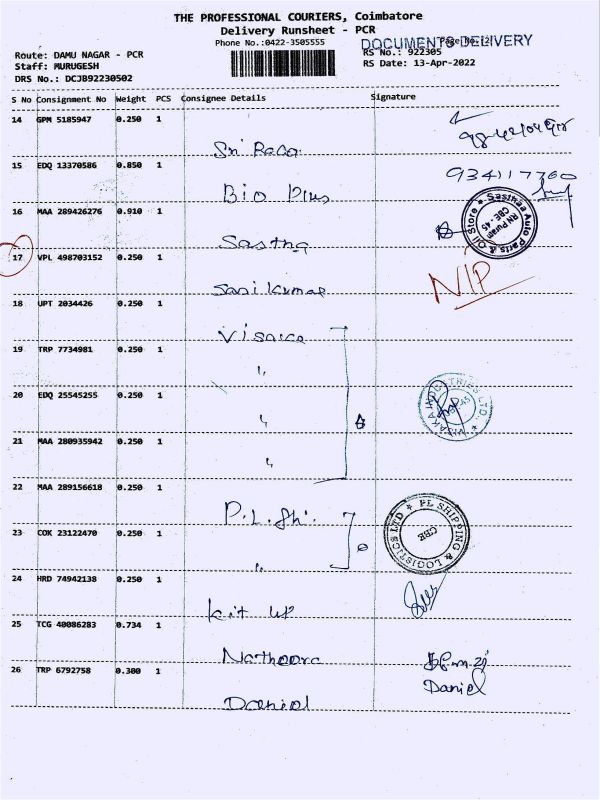 THE PROFESSIONAL COURIERS, Coimbatore
Delivery Runsheet - PCR
Phone No.:0422-3505555
DOCUMENTS DELIVERY
Route: DAMU NAGAR - PCR
RS No.: 922305
Staff: MURUGESH
RS Date: 13-Apr-2022
DRS No.: DCJB92230502
S No Consignment No Weight PCS Consignee Details Signature
14 GPM 5185947 0.250 1
15 EDQ 13370586 0.850 1
Bio Plus
16 MAA 289426276 0.910 1
Sasthaa Auto Parts & Oil Store
RN Puram
CBE - 45
17 VPL 498703152 0.250 1
Sasikumar
N/P
18 UPT 2034426 0.250 1
19 TRP 7734981 0.250 1
"
20 EDQ 25545255 0.250 1
"
21 MAA 280935942 0.250 1
"
22 MAA 289156618 0.250 1
PL SHIPPING & LOGISTICS LTD
CBE
23 COK 23122470 0.250 1
"
24 HRD 74942138 0.250 1
kit up
25 TCG 40086283 0.734 1
26 TRP 6792758 0.300 1
Daniel
Daniel